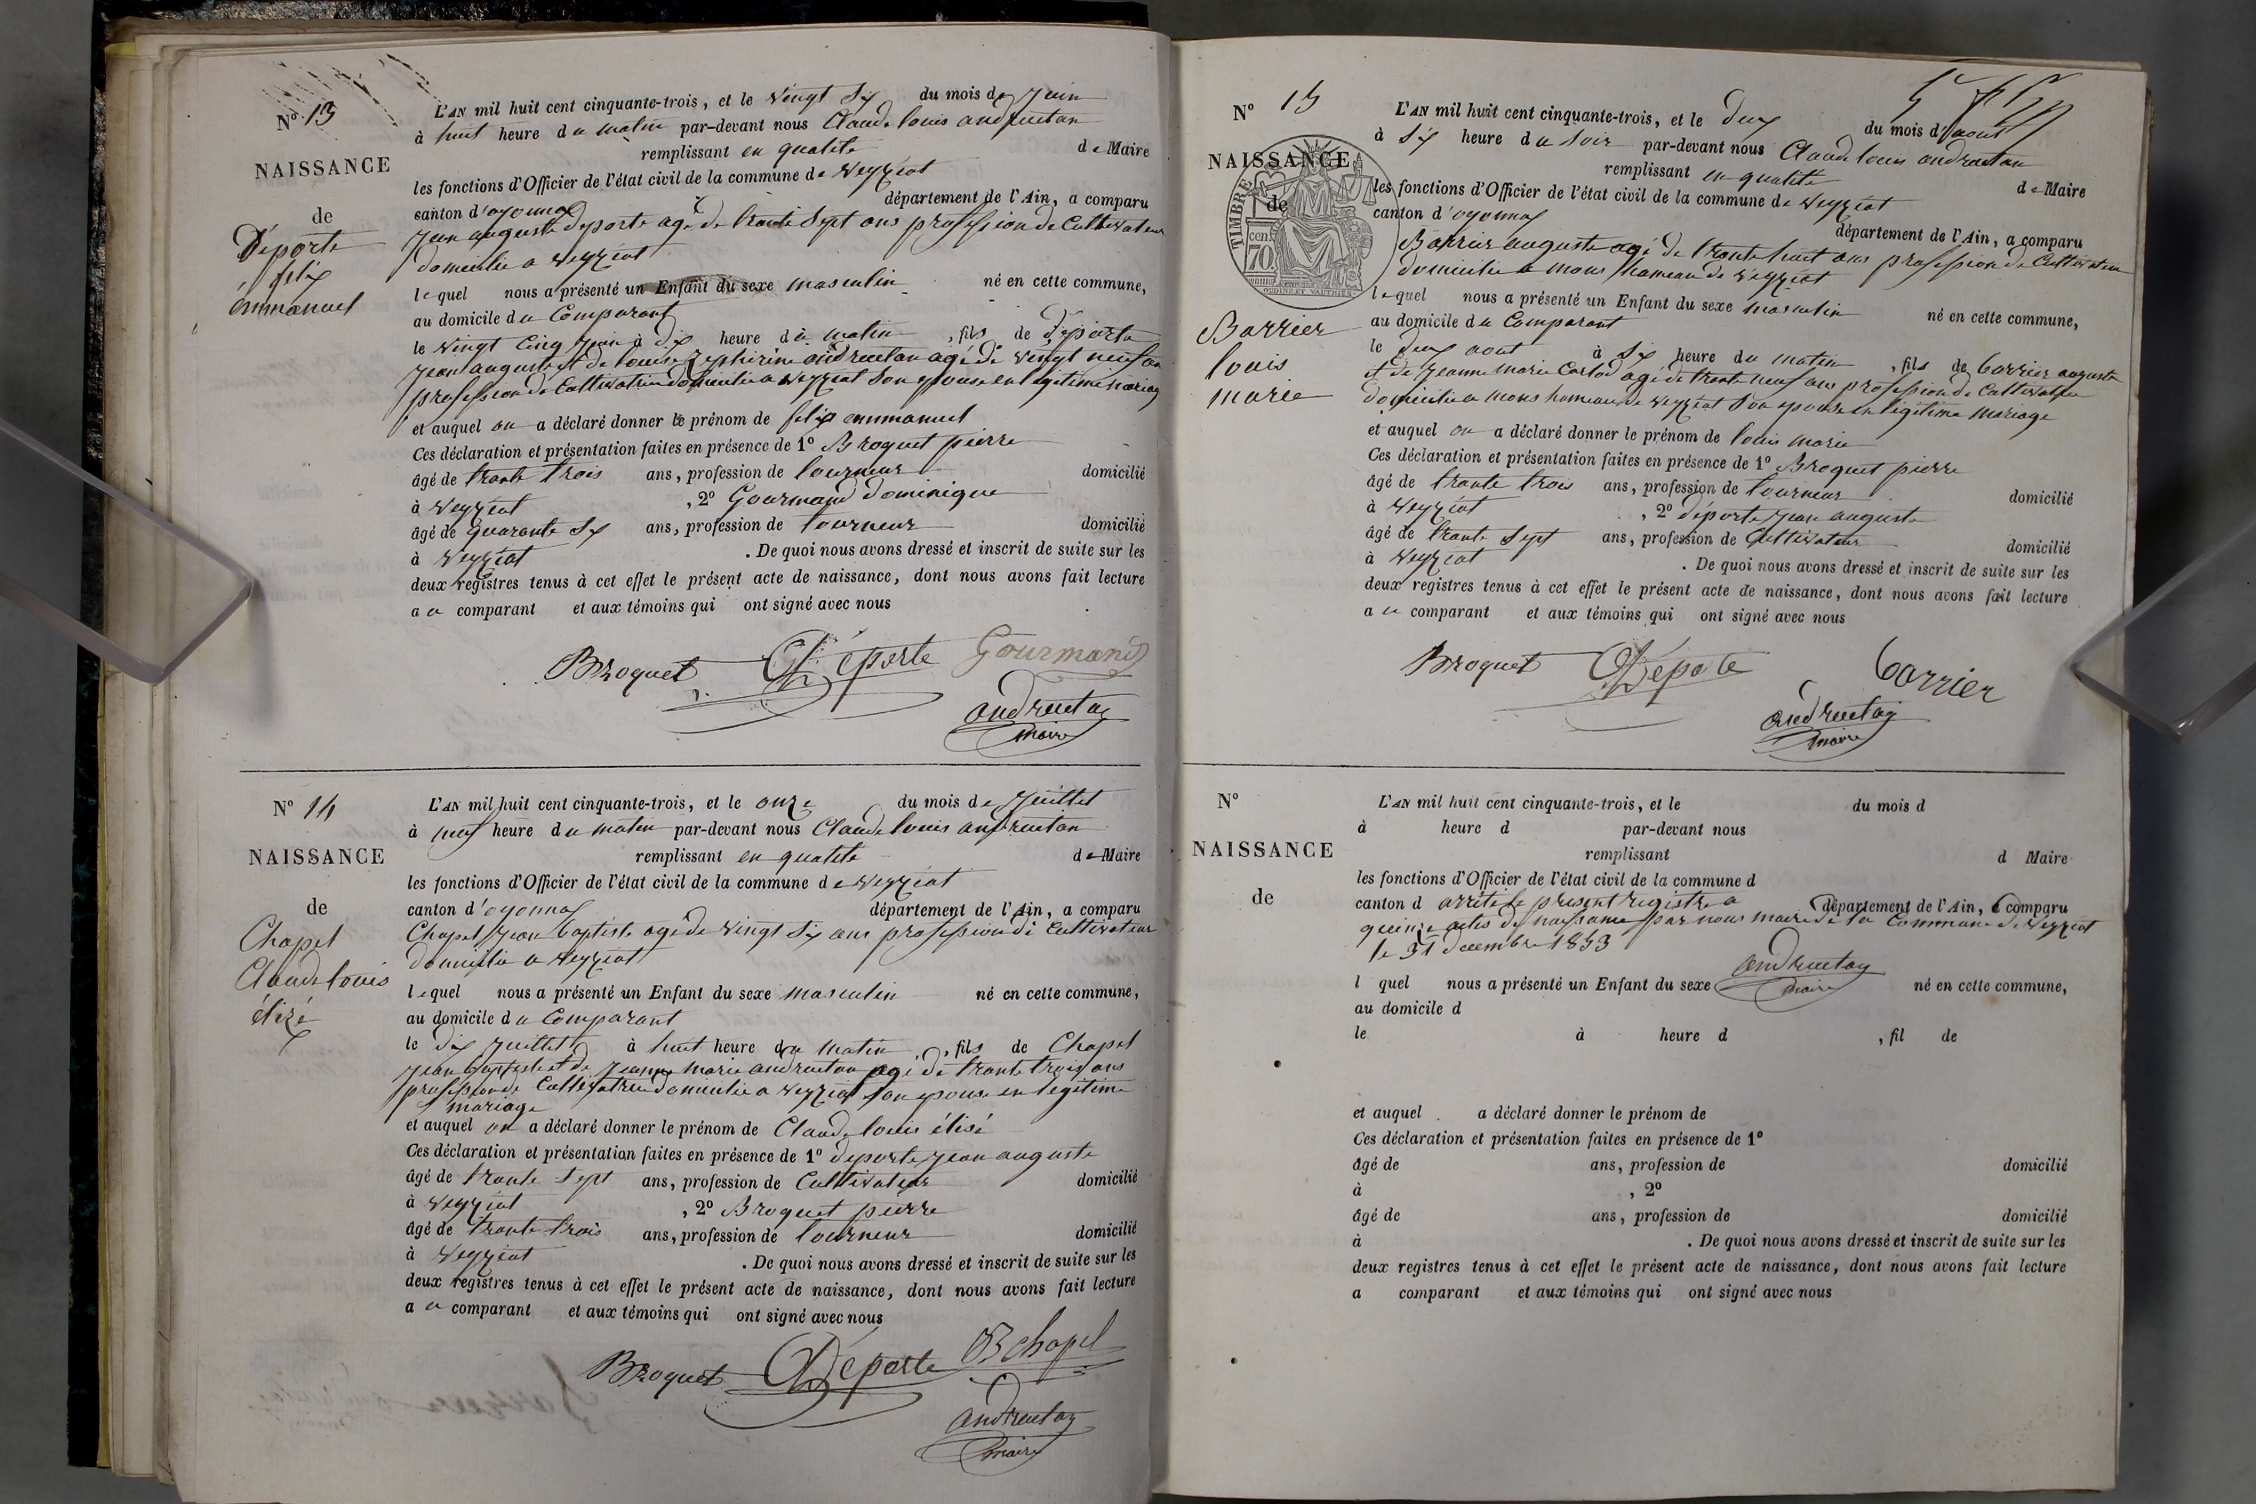 N° 13
NAISSANCE
de
Déporte
félix
émmanuel
L'AN mil huit cent cinquante-trois, et le vingt six du mois de juin
à huit heure du matin par-devant nous Claude louis andruetan
remplissant en qualité de Maire
les fonctions d'Officier de l'état civil de la commune de veyziat
canton d'oyonnax département de l'Ain, a comparu
jean auguste deporte agé de trante sept ans profession de Cultivateur
domicilié a veyziat
lequel nous a présenté un Enfant du sexe masculin né en cette commune,
au domicile du Comparant
le vingt cinq juin à dix heure du matin, fils de déporte
jean auguste et de louise zephirine andruetan agé de vingt neuf ans
profession de Cultivatrice domicilié a veyziat son epouse en legitime mariage
et auquel on a déclaré donner le prénom de felix emmanuel
Ces déclaration et présentation faites en présence de 1° Broquet pierre
âgé de trante trois ans, profession de tourneur domicilié
à veyziat, 2° Gourmand dominique
âgé de quarante six ans, profession de tourneur domicilié
à veyziat. De quoi nous avons dressé et inscrit de suite sur les
deux registres tenus à cet effet le présent acte de naissance, dont nous avons fait lecture
au comparant et aux témoins qui ont signé avec nous
Broquet Déporte Gourmand
andruetan
maire
N° 14
NAISSANCE
de
Chapel
Claude louis
élizé
L'AN mil huit cent cinquante-trois, et le onze du mois de juillet
à neuf heure du matin par-devant nous Claude louis andruetan
remplissant en qualité de Maire
les fonctions d'Officier de l'état civil de la commune de veyziat
canton d'oyonnax département de l'Ain, a comparu
Chapel jean baptiste agé de vingt six ans profession de Cultivateur
domicilié a veyziat
lequel nous a présenté un Enfant du sexe masculin né en cette commune,
au domicile du Comparant
le dix juillet à huit heure du matin, fils de Chapel
jean baptiste et de jeanne marie andruetan agé de trante trois ans
profession de Cultivatrice domicilié a veyziat son epouse en legitime
mariage
et auquel on a déclaré donner le prénom de Claude louis élisé
Ces déclaration et présentation faites en présence de 1° deporte jean auguste
âgé de trante sept ans, profession de Cultivateur domicilié
à veyziat, 2° Broquet pierre
âgé de trante trois ans, profession de tourneur domicilié
à veyziat. De quoi nous avons dressé et inscrit de suite sur les
deux registres tenus à cet effet le présent acte de naissance, dont nous avons fait lecture
au comparant et aux témoins qui ont signé avec nous
Broquet Déporte B chapel
andruetan
maire
N° 15
NAISSANCE
de
TIMBRE
cen. 70.
Barrier
louis
marie
L'AN mil huit cent cinquante-trois, et le deux du mois d'aout
à six heure du soir par-devant nous Claude louis andruetan
remplissant en qualité de Maire
les fonctions d'Officier de l'état civil de la commune de veyziat
canton d'oyonnax département de l'Ain, a comparu
Barrier auguste agé de trante huit ans profession de Cultivateur
domicilié a mons hameau de veyziat
lequel nous a présenté un Enfant du sexe masculin né en cette commune,
au domicile du Comparant
le deux aout à six heure du matin, fils de barrier auguste
et de jeanne marie Carlod agé de trante neuf ans profession de Cultivatrice
domicilié a mons hameau de veyziat son epouse en legitime mariage
et auquel on a déclaré donner le prénom de louis marie
Ces déclaration et présentation faites en présence de 1° Broquet pierre
âgé de trante trois ans, profession de tourneur domicilié
à veyziat, 2° déporte jean auguste
âgé de trante sept ans, profession de Cultivateur domicilié
à veyziat. De quoi nous avons dressé et inscrit de suite sur les
deux registres tenus à cet effet le présent acte de naissance, dont nous avons fait lecture
au comparant et aux témoins qui ont signé avec nous
Broquet Déporte barrier
andruetan
maire
N°
NAISSANCE
de
L'AN mil huit cent cinquante-trois, et le du mois d
à heure d par-devant nous
remplissant d Maire
les fonctions d'Officier de l'état civil de la commune d
canton d arrêté le present registre a département de l'Ain, a comparu
quinze actes de naissance par nous maire de la Commune de veyziat
le 31 decembre 1853
andruetan
maire
l quel nous a présenté un Enfant du sexe né en cette commune,
au domicile d
le à heure d, fil de
et auquel a déclaré donner le prénom de
Ces déclaration et présentation faites en présence de 1°
âgé de ans, profession de domicilié
à, 2°
âgé de ans, profession de domicilié
à. De quoi nous avons dressé et inscrit de suite sur les
deux registres tenus à cet effet le présent acte de naissance, dont nous avons fait lecture
a comparant et aux témoins qui ont signé avec nous